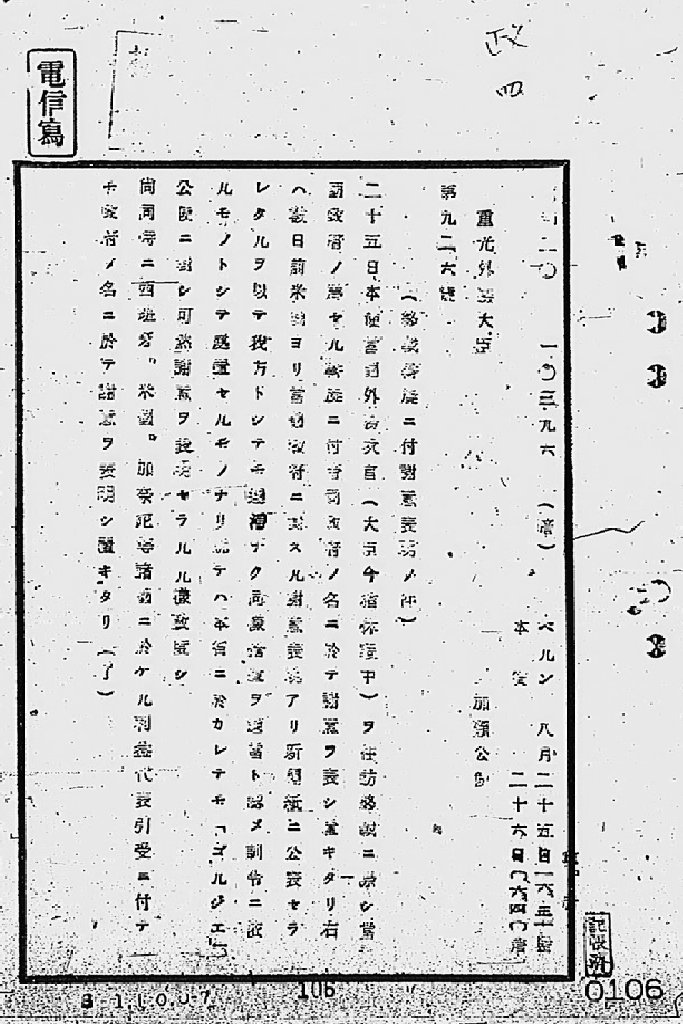 政
四
電信寫
二〇 一〇三九六 (暗) ベルン 八月二十五日一六三〇發
本省 二十六日〇六四〇着
重光外務大臣 加瀬公使
第九二六號
(終戰斡旋ニ付謝意表明ノ件)
二十五日本使當國外務次官(大臣今猶休暇中)ヲ往訪終戰ニ際シ當
國政府ノ爲セル斡旋ニ付帝國政府ノ名ニ於テ謝意ヲ表シ置キタリ右
ハ數日前米國ヨリ當國政府ニ對スル謝意表明アリ新聞紙ニ公表セラ
レタルヲ以テ我方トシテモ遲滯ナク同樣措置ヲ適當ト認メ訓令ニ依
ルモノトシテ處置セルモノナリ就テハ本省ニ於カレテモ「ゴルジエ」
公使ニ對シ可然謝意ヲ表明セラルル樣致度シ
尚同時ニ西班牙。米國。加奈陀等諸國ニ於ケル利益代表引受ニ付テ
モ政府ノ名ニ於テ謝意ヲ表明シ置キタリ(了)
記帳濟
B-1.1.0.0-7
106
0106